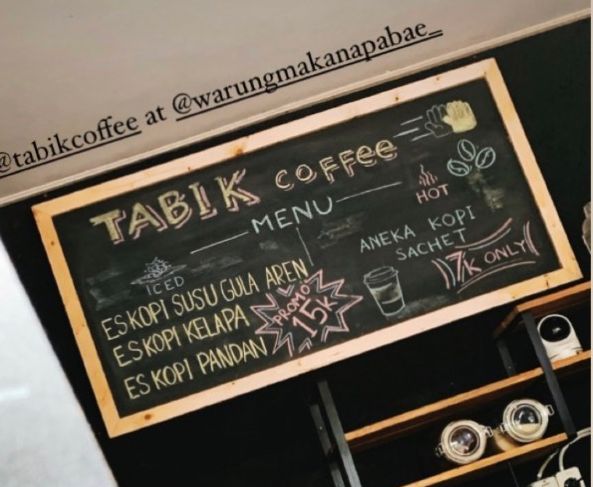 @tabikcoffee at @warungmakanapabae_
TABIK COFFEE
MENU
ICED
ES KOPI SUSU GULA AREN
ES KOPI KELAPA
ES KOPI PANDAN
PROMO
15K
HOT
ANEKA KOPI
SACHET
7K ONLY